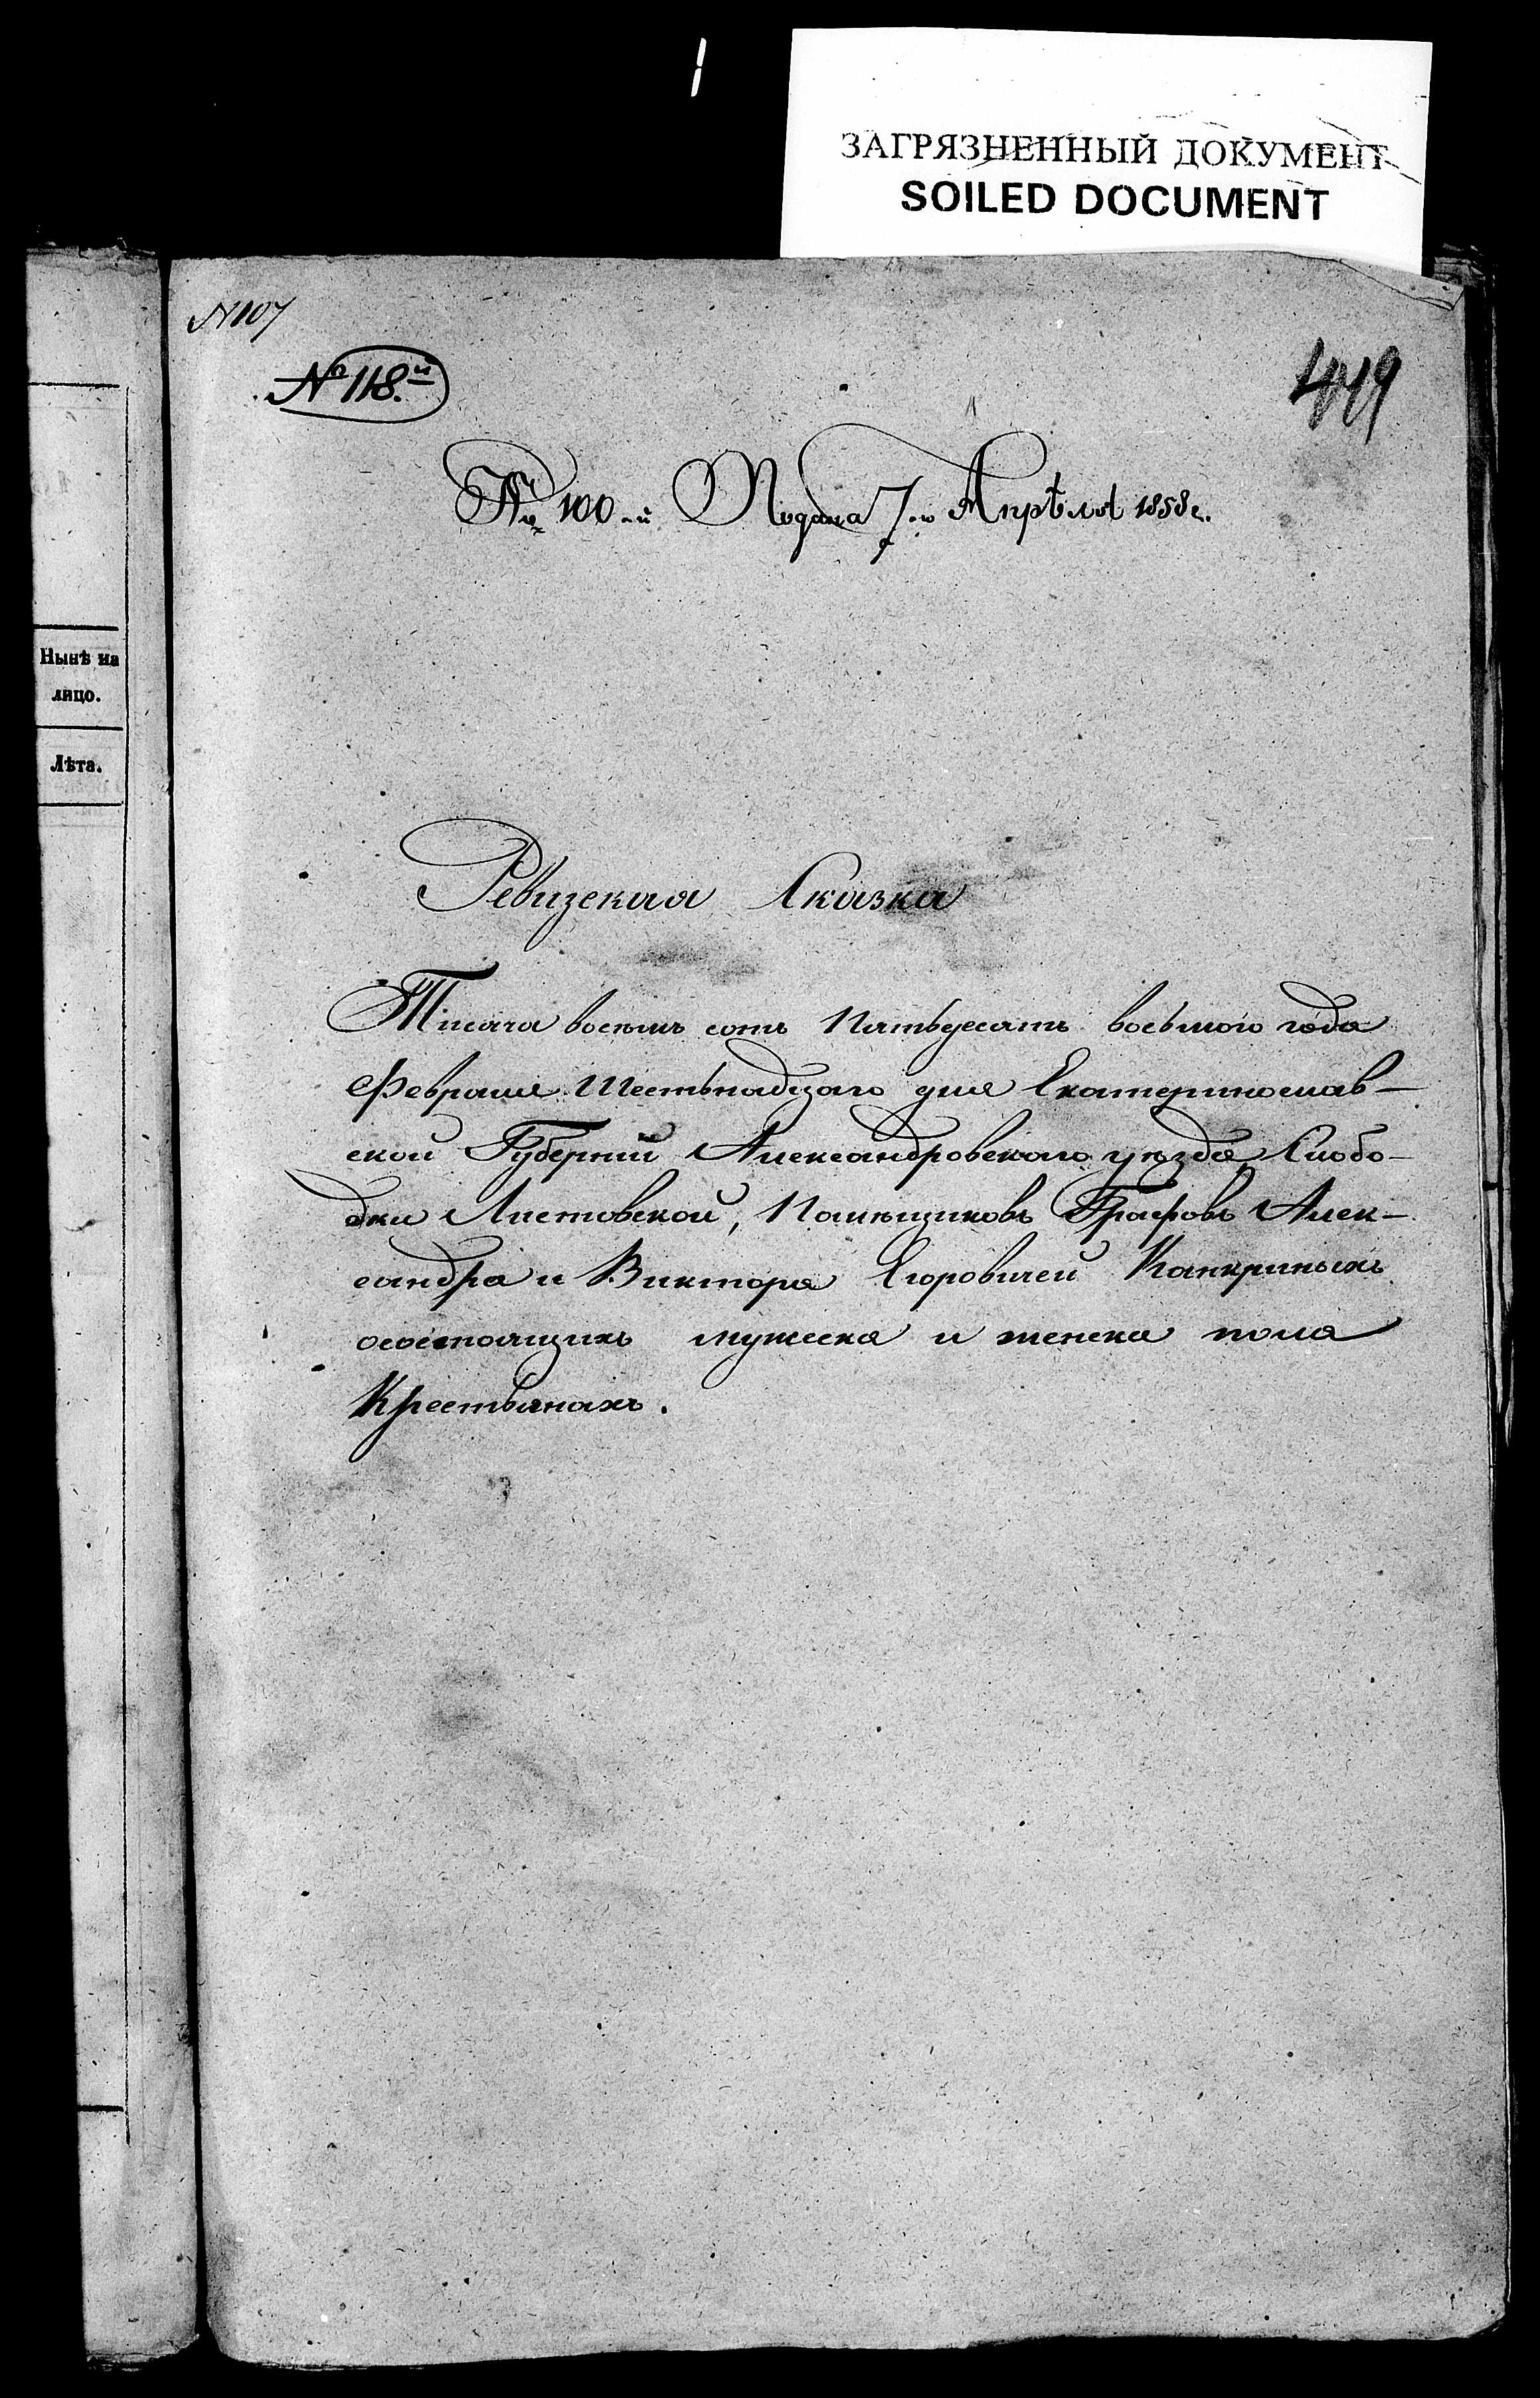 ЗАГРЯЗНЕННЫЙ ДОКУМЕНТ
SOILED DOCUMENT
Нынѣ на
лицо.
Лѣта.
N 107
№ 118.й
449
№ 100-й Подана 7-го Апрѣля 1858 г.
Ревизская Сказка
Тысяча восемь сотъ Пятьдесятъ восьмого года
Февраля Шестьнадцаго дня Екатеринослав-
ской Губерніи Александровскаго уѣзда, Слобо-
дки Листовской, Помѣщиковъ Графовъ Алек-
сандра и Виктора Егоровичей Канкриныхъ
осостоящихъ мужеска и женска пола
Крестьянахъ.